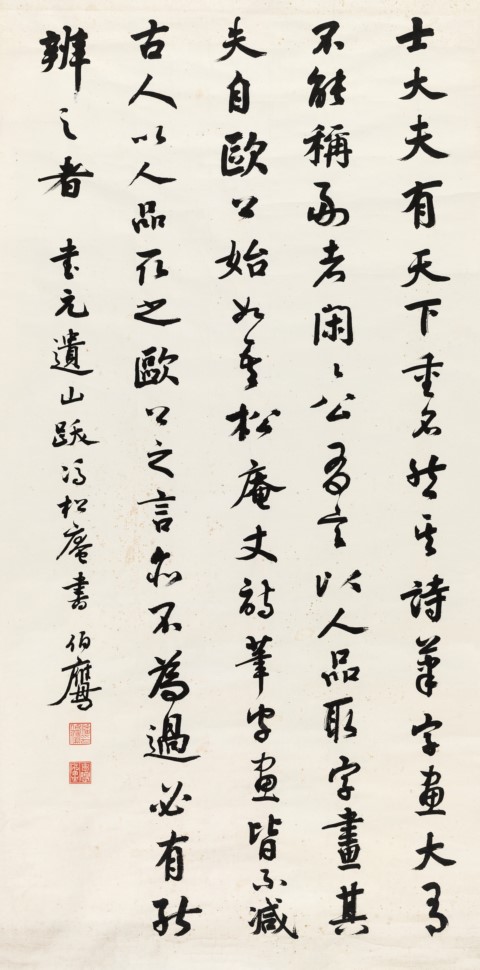 士大夫有天下重名然其詩筆字畫大有
不能稱副者閑々公有言以人品取字畫其
失自歐公始如吾松庵丈詩筆字畫皆不減
古人以人品取之歐公之言亦不為過必有能
辨之者 書元遺山跋馮松庵書 伯鷹